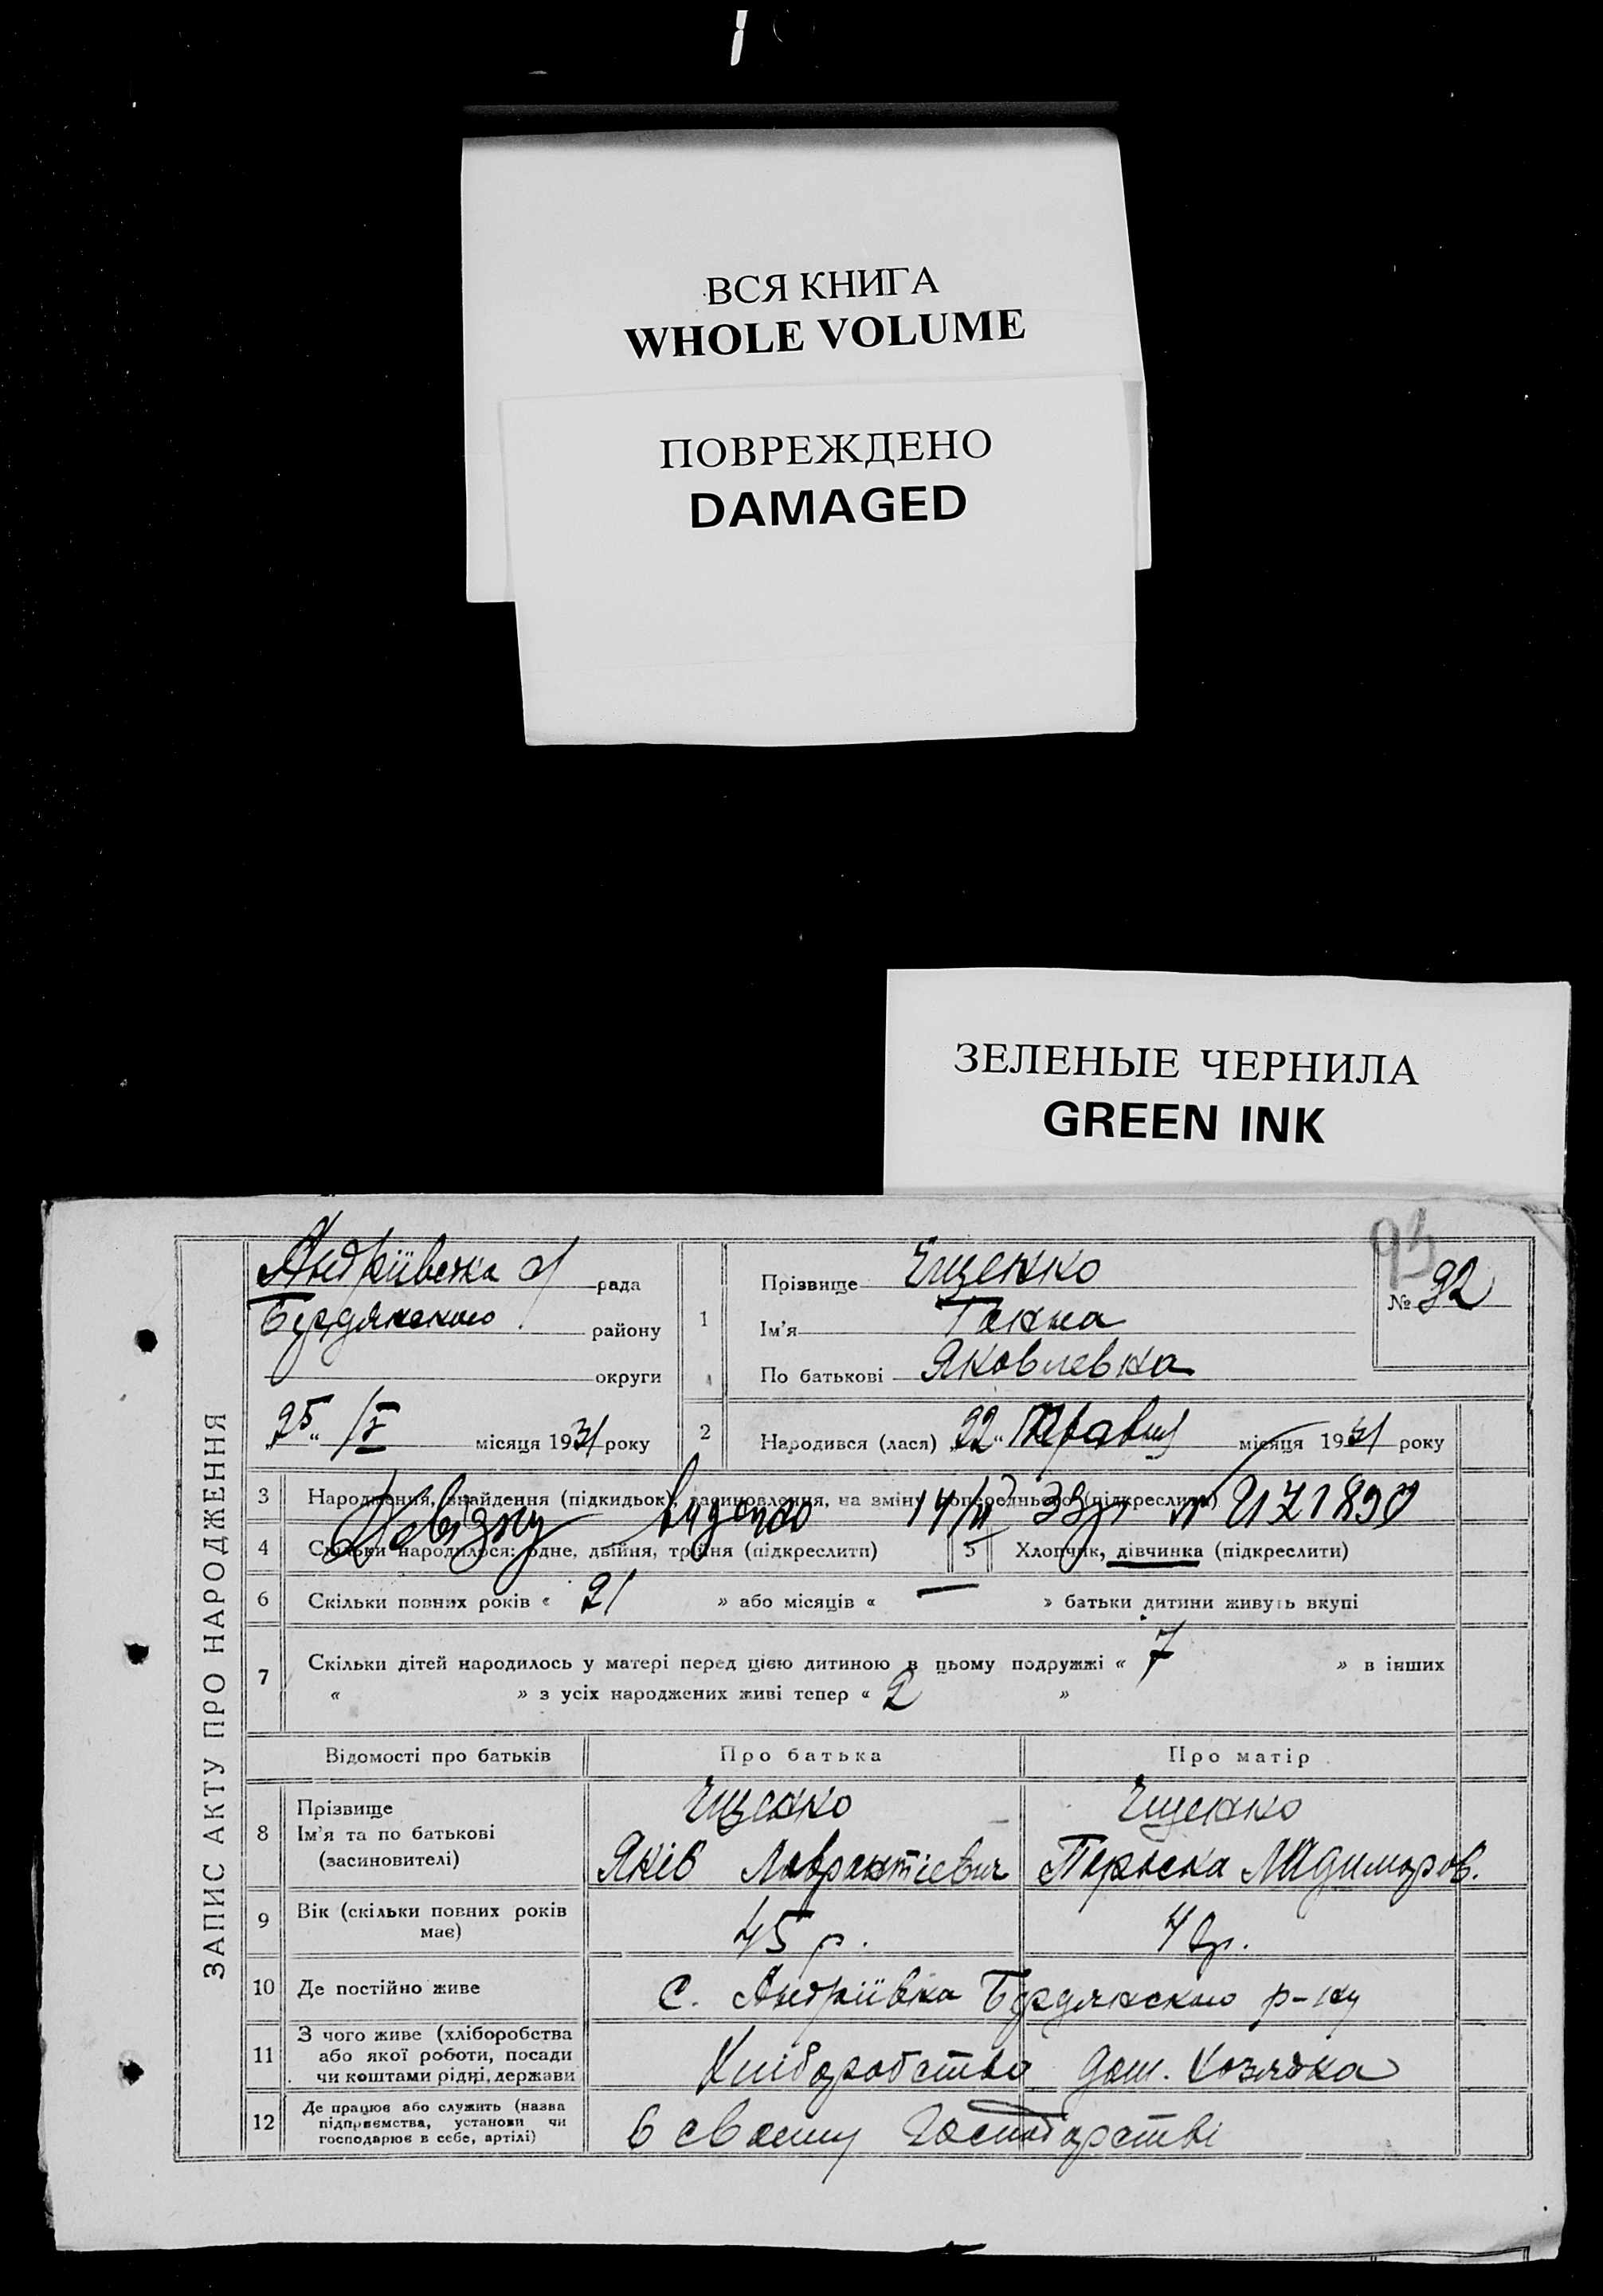 ВСЯ КНИГА
WHOLE VOLUME
ПОВРЕЖДЕНО
DAMAGED
ЗЕЛЕНЫЕ ЧЕРНИЛА
GREEN INK
ЗАПИС АКТУ ПРО НАРОДЖЕННЯ
93
№ 92
Андріївська с/рада
Бердянського району
округи
25 /V місяця 1931 року
1 Прізвище Єщенко
Ім'я Ганна
По батькові Яковлевна
2 Народився (лася) „22“ Травня місяця 1931 року
3 Народження, знайдення (підкидьок), засиновлення, на зміну попереднього (підкреслити)
видано 14/ 39р №
4 Скільки народилося: одне, двійня, трійня (підкреслити) 5 Хлопчик, дівчинка (підкреслити)
6 Скільки повних років « 21 » або місяців « — » батьки дитини живуть вкупі
7 Скільки дітей народилось у матері перед цією дитиною в цьому подружжі « 7 » в інших
« » з усіх народжених живі тепер « 2 »
Відомості про батьків Про батька Про матір
8 Прізвище Єщенко Єщенко
Ім'я та по батькові Яків Лаврантієвич Параска
(засиновителі)
9 Вік (скільки повних років має) 45 р. 4 р.
10 Де постійно живе с. Андріївка Бердянського р-ну
11 З чого живе (хліборобства або якої роботи, посади чи коштами рідні, держави Хліборобство дом. хозяйка
12 Де працює або служить (назва підприємства, установи чи господарює в себе, артілі) в своєму господарстві